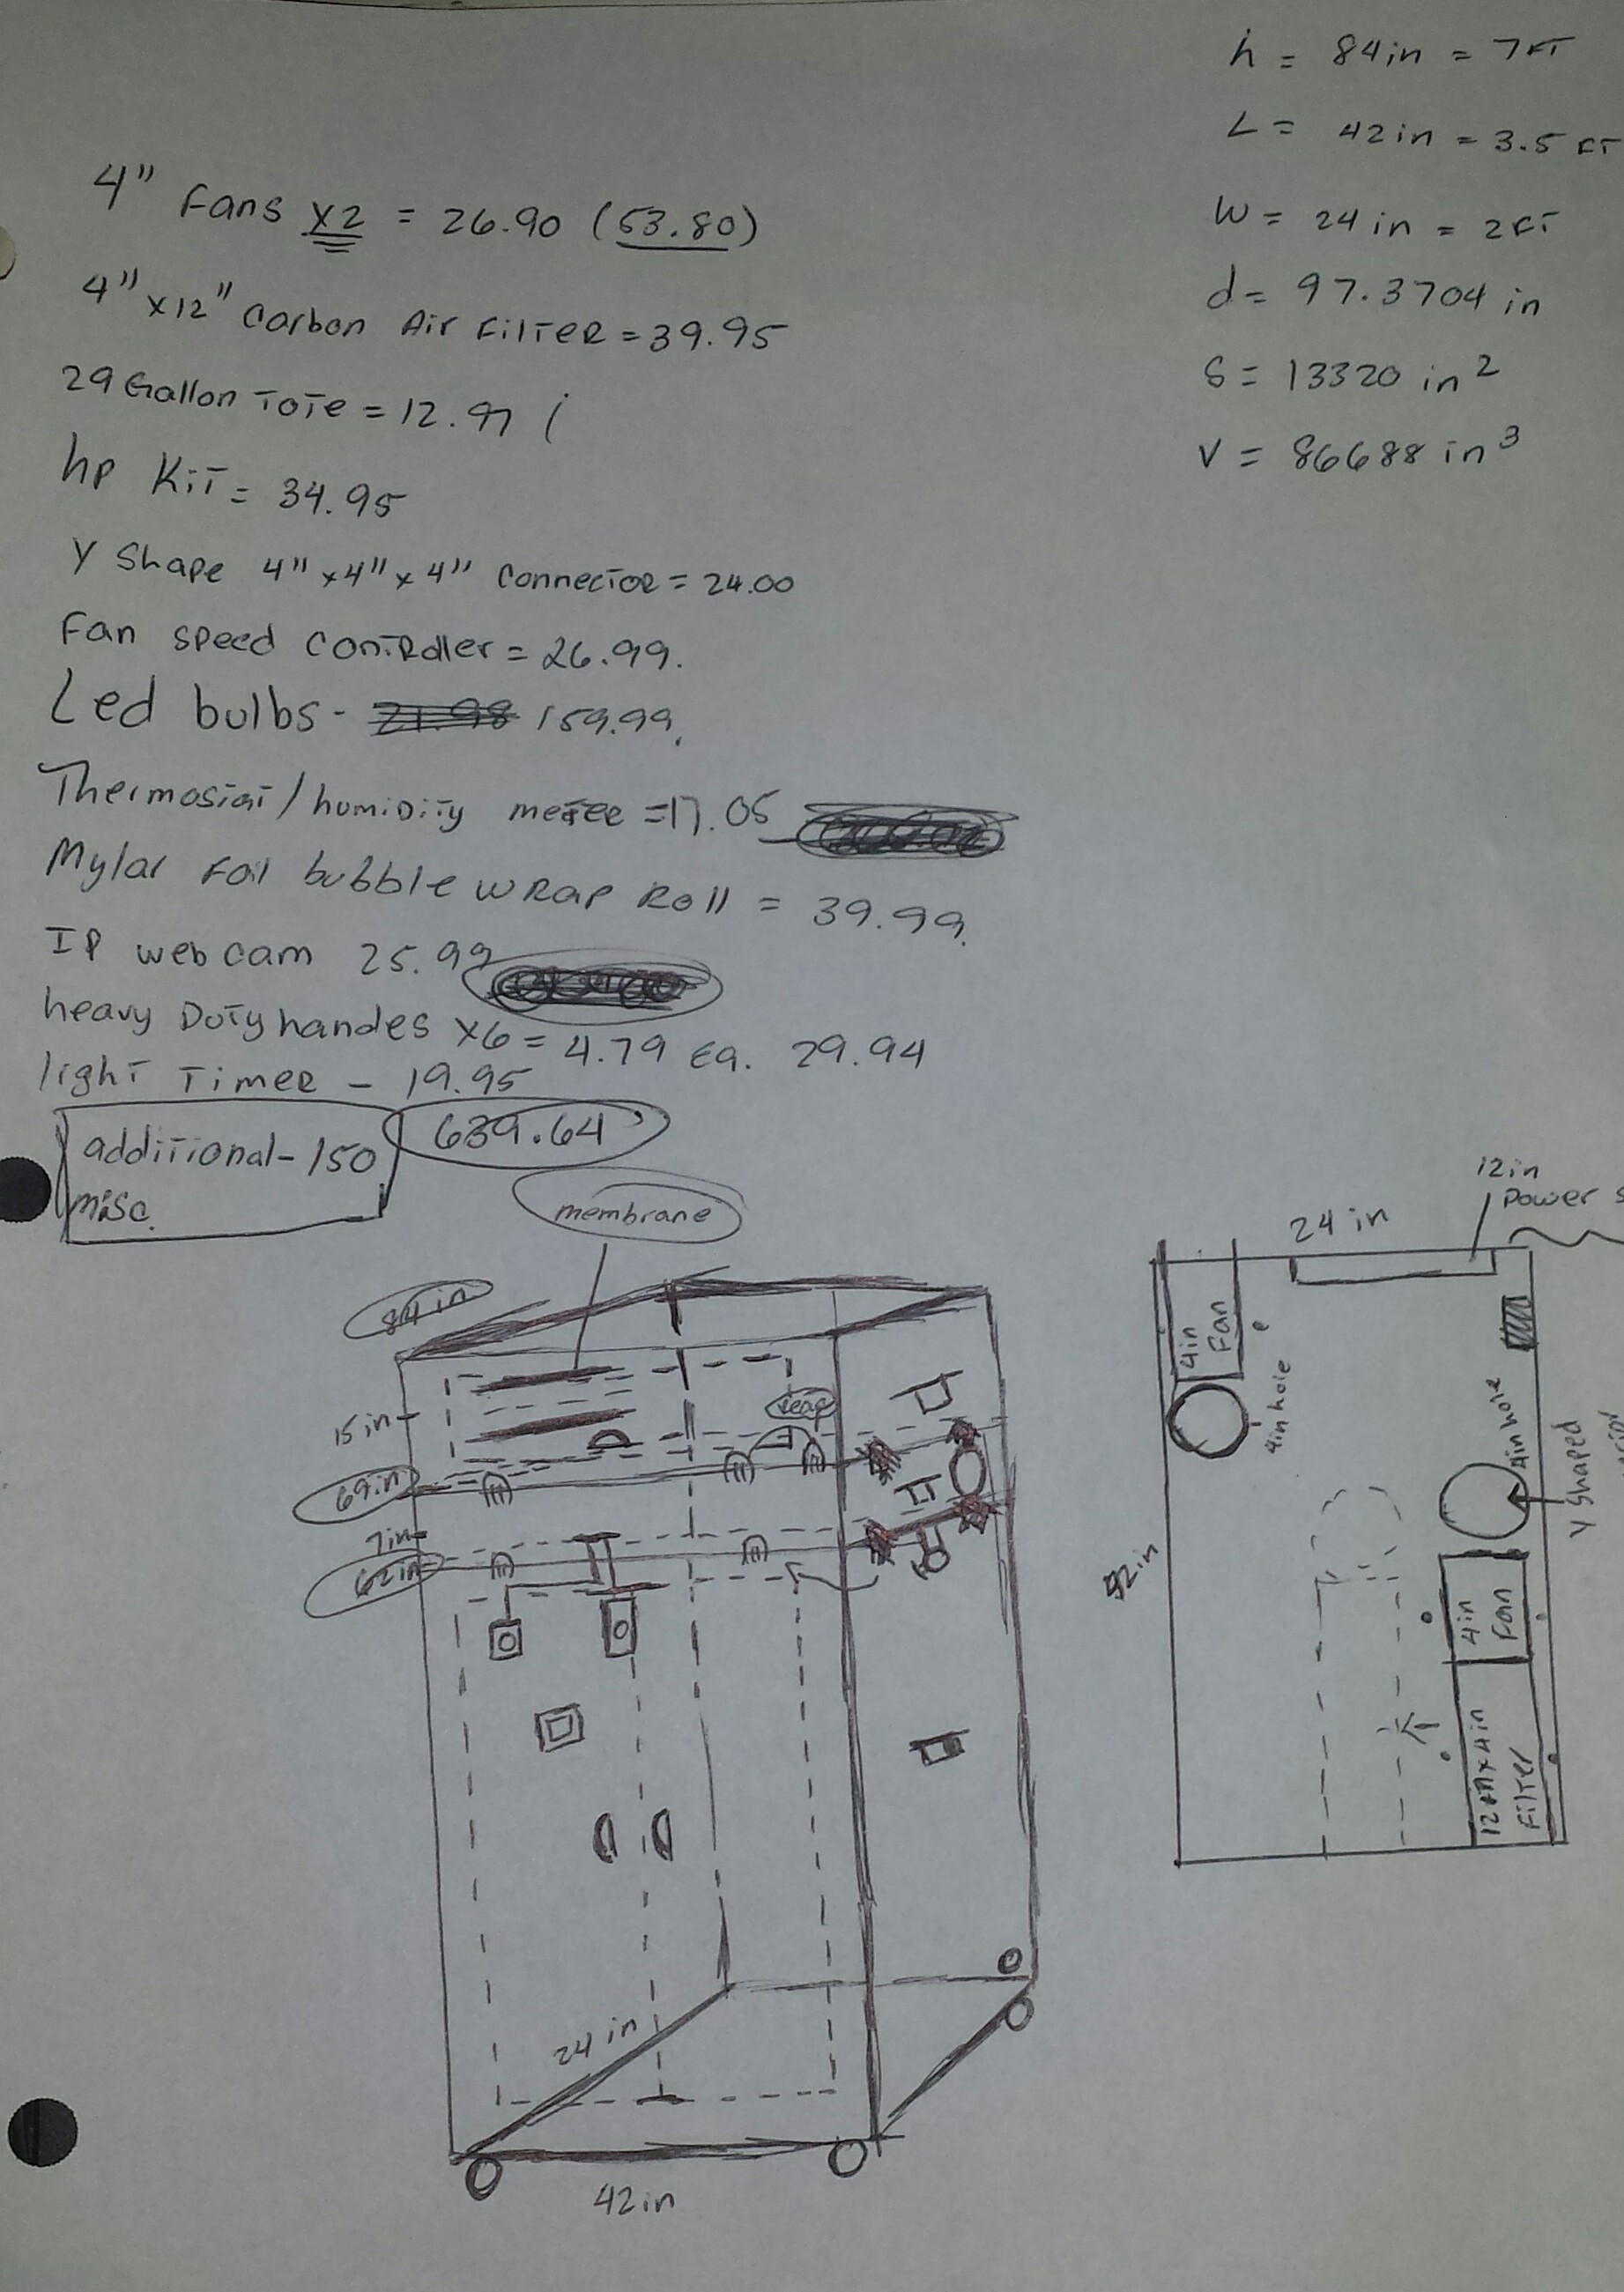 h = 84in = 7FT
L = 42in = 3.5 FT
W = 24in = 2FT
d = 97.3704 in
S = 13320 in²
V = 86688 in³
4" Fans x2 = 26.90 (53.80)
4" x12" Carbon Air Filter = 39.95
29 Gallon Tote = 12.97
hp Kit = 34.95
Y Shape 4" x 4" x 4" Connector = 24.00
Fan speed Controller = 26.99.
Led bulbs - 21.98 159.99.
Thermostat/humidity meter = 17.05
Mylar Foil bubble wrap Roll = 39.99.
IP web cam 25.99
heavy Duty handes x6 = 4.79 Ea. 29.94
light Timer - 19.95
additional - 150
misc.
639.64
membrane
84in
15in
69in
7in
62in
24in
42in
12in
Power
24 in
4in
Fan
4in hole
42in
4in hole
Y Shaped
4in
Fan
12in x 4in
Filter